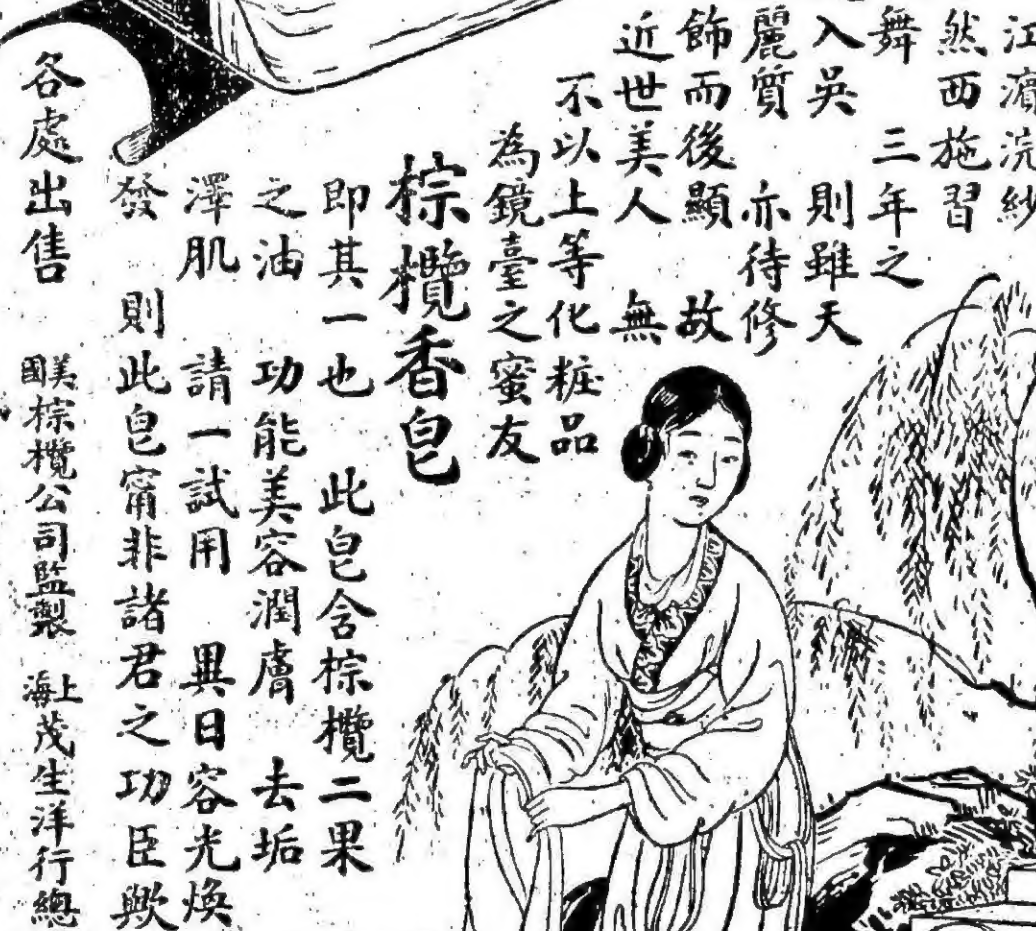 江濱浣紗
然西施習
舞　三年之
入吳　則雖天
麗質　亦待修
飾而後顯　故
近世美人　無
不以上等化粧品
為鏡臺之蜜友
棕欖香皂
即其一也　此皂含棕欖二果
之油　功能美容潤膚　去垢
澤肌　請一試用　異日容光煥
發　則此皂甯非諸君之功臣歟
各處出售　美國棕欖公司監製　上海茂生洋行總